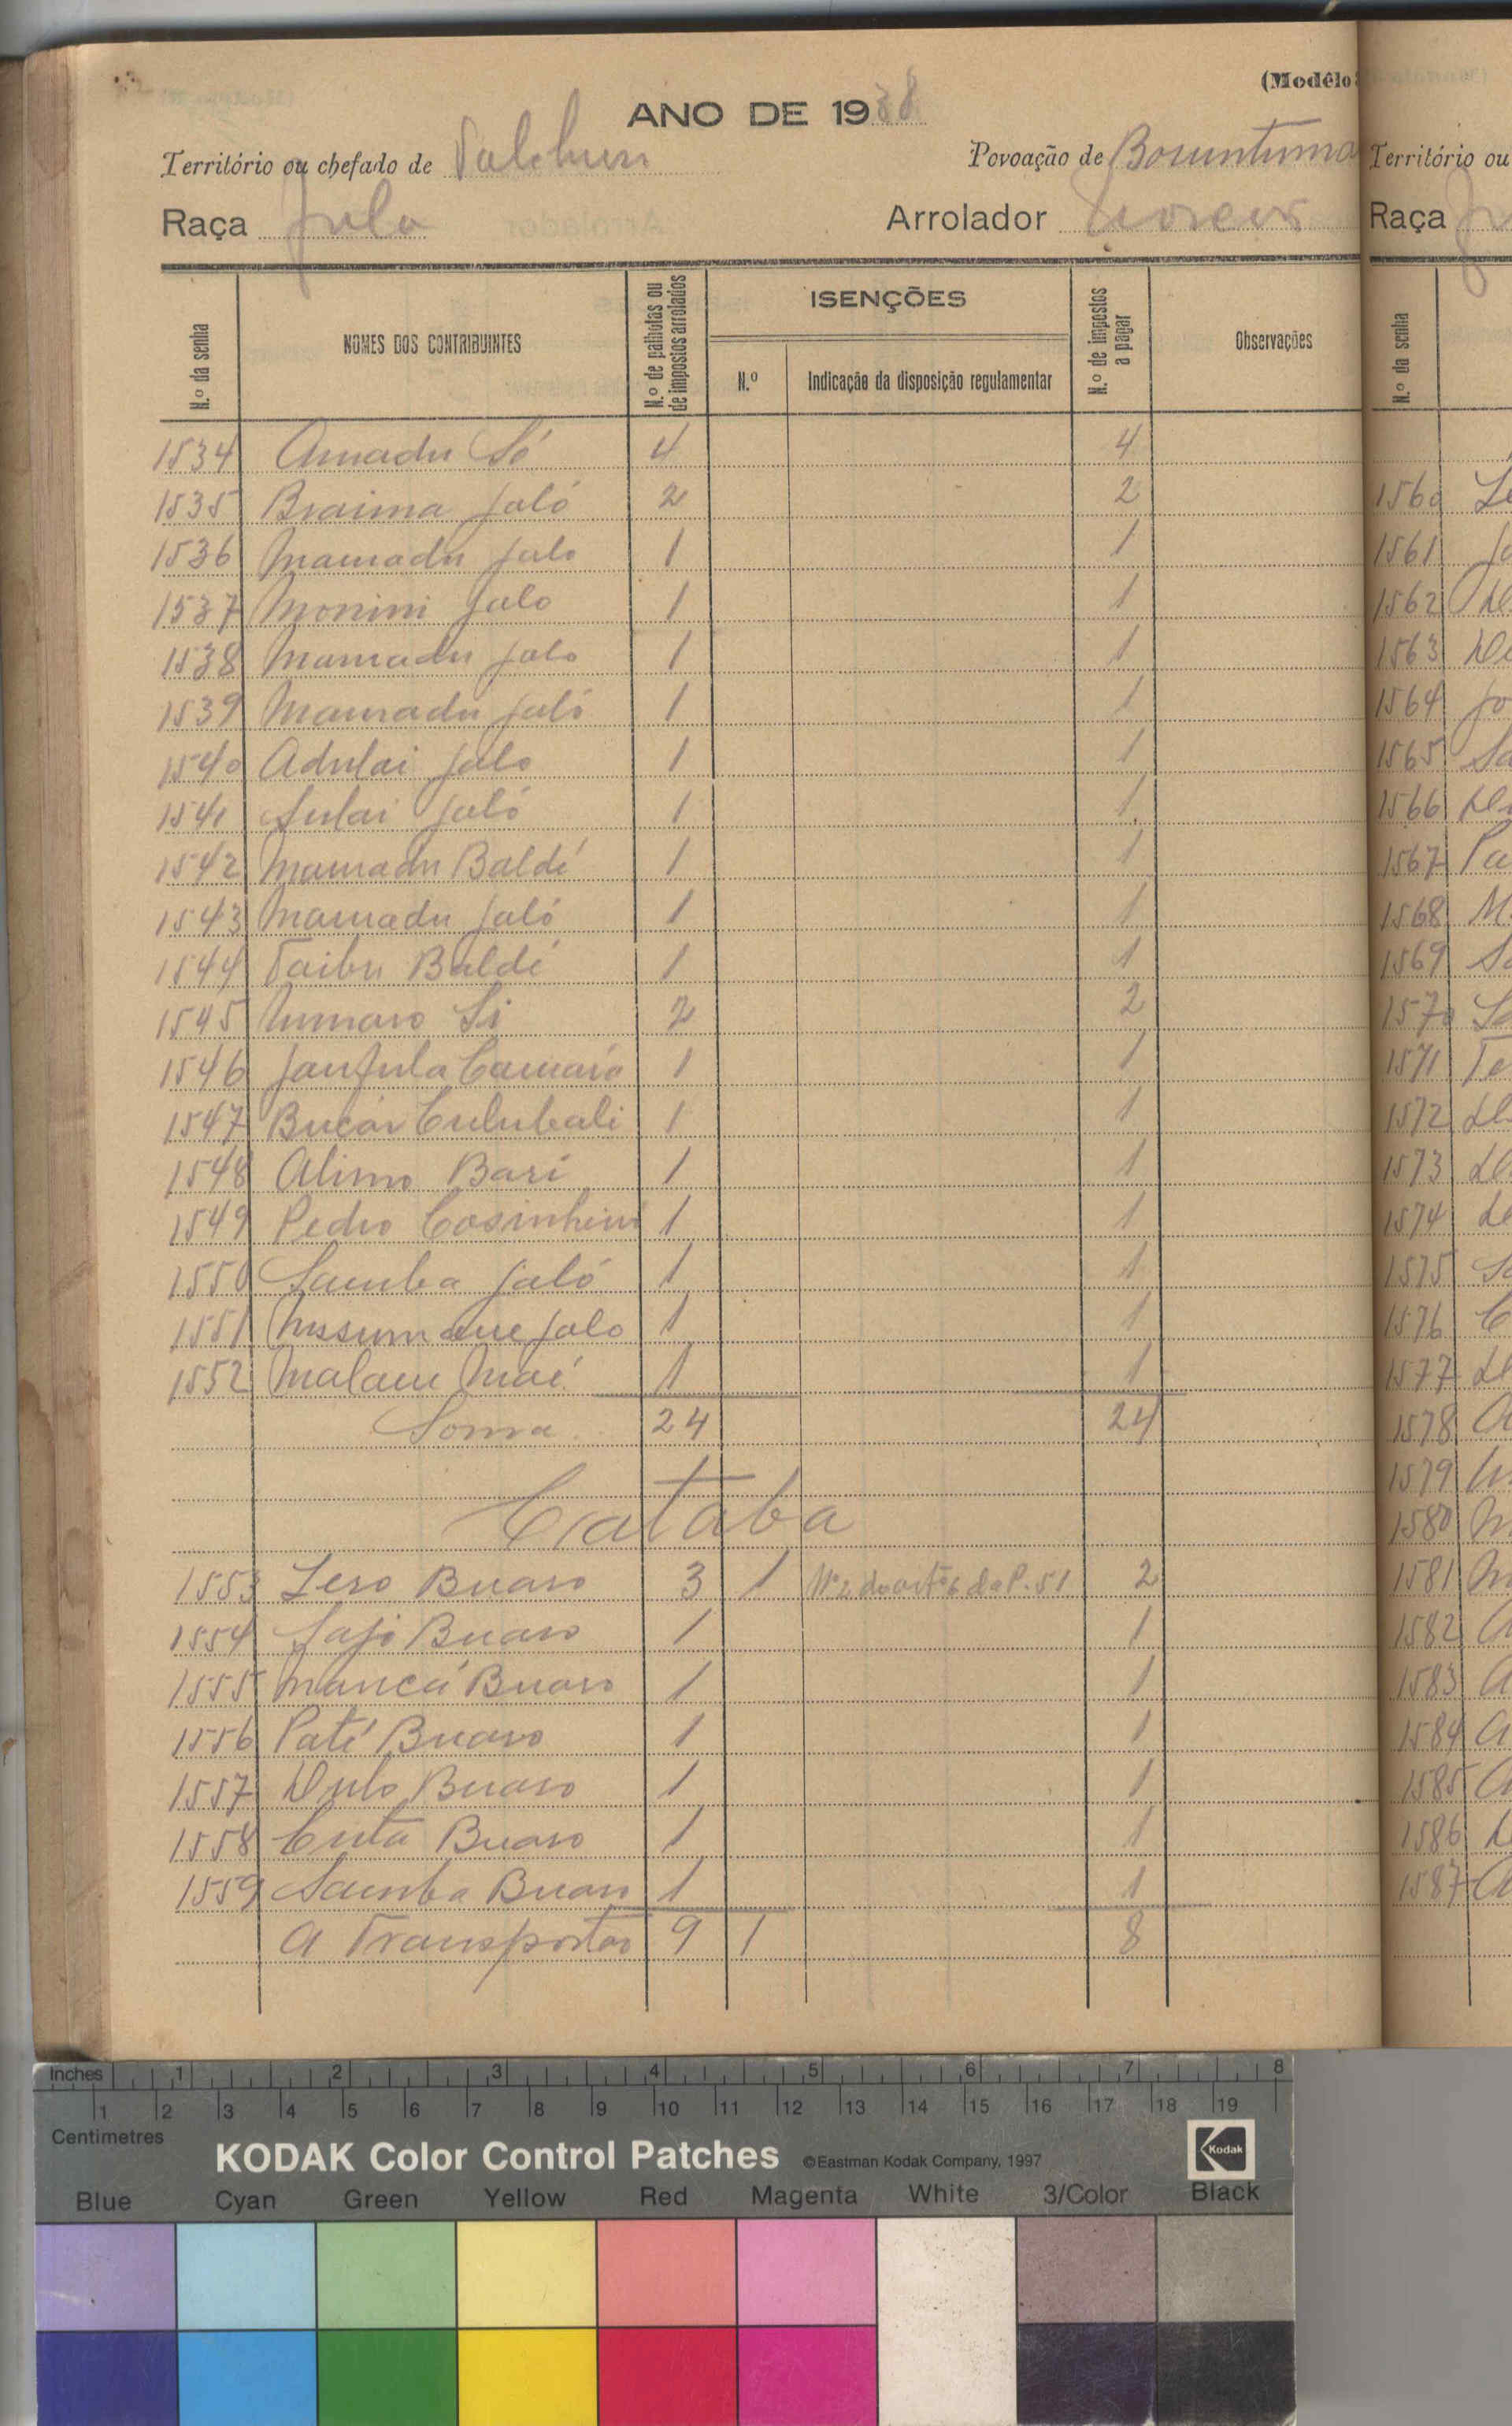 (Modêlo
ANO DE 1938
Território ou chefado de
Povoação de Boruntuma
Raça Fula
Arrolador
N.º da senha
NOMES DOS CONTRIBUINTES
N.º de palhotas ou de impostos arrolados
ISENÇÕES
N.º
Indicação da disposição regulamentar
N.º de impostos a pagar
Observações
1534 Amadu Só 4 4
1535 Braima Jaló 2 2
1536 Mamadu Jalo 1 1
1537 Monini Jalo 1 1
1538 Mamadu Jalo 1 1
1539 Mamadu Jaló 1 1
1540 Adulai Jalo 1 1
1541 Sulai Jaló 1 1
1542 Mamadu Baldé 1 1
1543 Mamadu Jaló 1 1
1544 Taibu Baldé 1 1
1545 Umaro Si 2 2
1546 Janfula Camará 1 1
1547 Bucar Culubali 1 1
1548 Alimo Bari 1 1
1549 Pedro Cosinheiro 1 1
1550 Samba Jaló 1 1
1551 Ussumane Jalo 1 1
1552 Malam Mané 1 1
Soma 24 24
Cataba
1553 Lero Buaro 3 1 Nº 2 do artº 6 da P. 51 2
1554 Buaro 1 1
1555 Mancá Buaro 1 1
1556 Paté Buaro 1 1
1557 Dulo Buaro 1 1
1558 Cuta Buaro 1 1
1559 Samba Buaro 1 1
A Transportar 9 1 8
Território ou
Raça
N.º da senha
1560
1561
1562
1563
1564
1565
1566
1567
1568
1569
1570
1571
1572
1573
1574
1575
1576
1577
1578
1579
1580
1581
1582
1583
1584
1585
1586
1587
Inches 1 2 3 4 5 6 7 8
1 2 3 4 5 6 7 8 9 10 11 12 13 14 15 16 17 18 19
Centimetres
KODAK Color Control Patches ©Eastman Kodak Company, 1997 Kodak
Blue Cyan Green Yellow Red Magenta White 3/Color Black